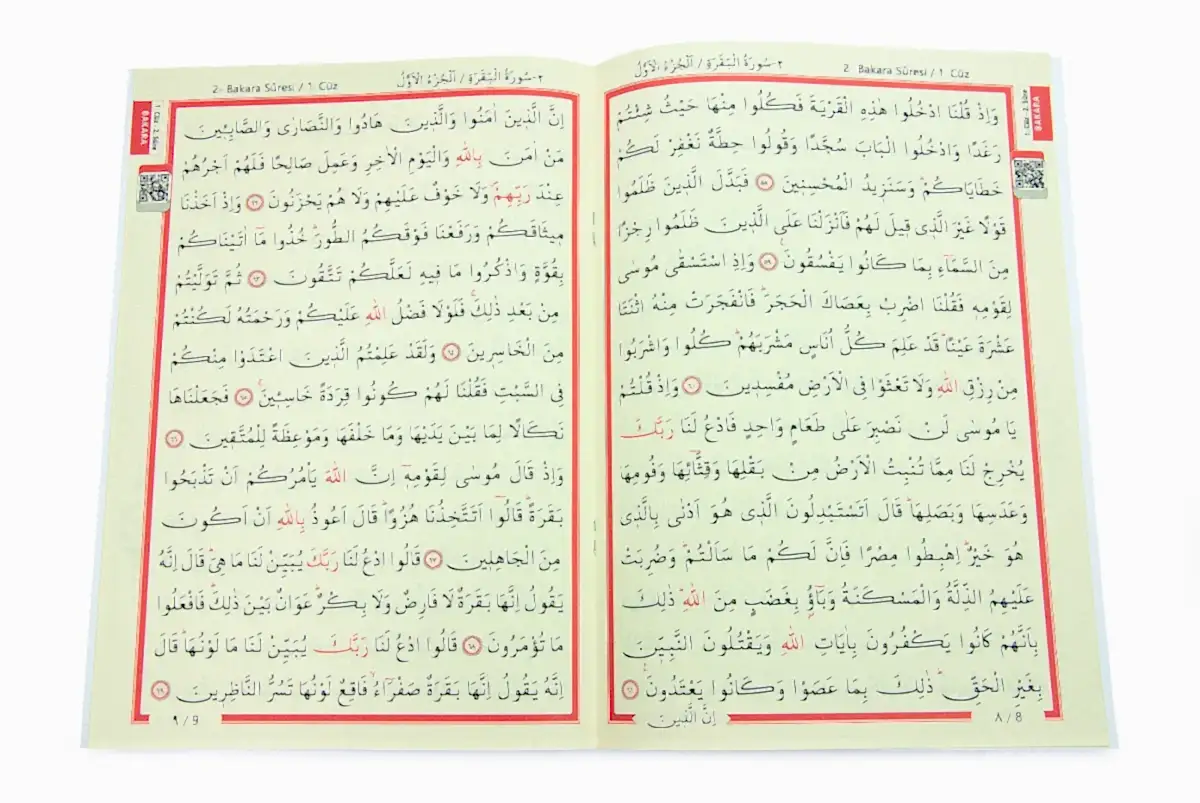 ٢-سُورَةُ الْبَقَرَةِ / اَلْجُزْءُ الْاَوَّلُ
2 Bakara Sûresi / 1 Cüz
1. Cüz - 2. Sûre
BAKARA
وَاِذْ قُلْنَا ادْخُلُوا هٰذِهِ الْقَرْيَةَ فَكُلُوا مِنْهَا حَيْثُ شِئْتُمْ
رَغَدًا وَادْخُلُوا الْبَابَ سُجَّدًا وَقُولُوا حِطَّةٌ نَغْفِرْ لَكُمْ
خَطَايَاكُمْۜ وَسَنَزِيدُ الْمُحْسِنِينَ ٥٨ فَبَدَّلَ الَّذِينَ ظَلَمُوا
قَوْلًا غَيْرَ الَّذِي قِيلَ لَهُمْ فَاَنْزَلْنَا عَلَى الَّذِينَ ظَلَمُوا رِجْزًا
مِنَ السَّمَٓاءِ بِمَا كَانُوا يَفْسُقُونَ۟ ٥٩ وَاِذِ اسْتَسْقٰى مُوسٰى
لِقَوْمِهِ فَقُلْنَا اضْرِبْ بِعَصَاكَ الْحَجَرَۜ فَانْفَجَرَتْ مِنْهُ اثْنَتَا
عَشْرَةَ عَيْنًاۜ قَدْ عَلِمَ كُلُّ اُنَاسٍ مَشْرَبَهُمْۜ كُلُوا وَاشْرَبُوا
مِنْ رِزْقِ اللّٰهِ وَلَا تَعْثَوْا فِي الْاَرْضِ مُفْسِدِينَ ٦٠ وَاِذْ قُلْتُمْ
يَا مُوسٰى لَنْ نَصْبِرَ عَلٰى طَعَامٍ وَاحِدٍ فَادْعُ لَنَا رَبَّكَ
يُخْرِجْ لَنَا مِمَّا تُنْبِتُ الْاَرْضُ مِنْ بَقْلِهَا وَقِثَّٓائِهَا وَفُومِهَا
وَعَدَسِهَا وَبَصَلِهَاۜ قَالَ اَتَسْتَبْدِلُونَ الَّذِي هُوَ اَدْنٰى بِالَّذِي
هُوَ خَيْرٌۜ اِهْبِطُوا مِصْرًا فَاِنَّ لَكُمْ مَا سَاَلْتُمْۜ وَضُرِبَتْ
عَلَيْهِمُ الذِّلَّةُ وَالْمَسْكَنَةُ وَبَٓاؤُ۫ بِغَضَبٍ مِنَ اللّٰهِۜ ذٰلِكَ
بِاَنَّهُمْ كَانُوا يَكْفُرُونَ بِاٰيَاتِ اللّٰهِ وَيَقْتُلُونَ النَّبِيّٖنَ
بِغَيْرِ الْحَقِّۜ ذٰلِكَ بِمَا عَصَوْا وَكَانُوا يَعْتَدُونَ۟ ٦١
اِنَّ الَّذِينَ
٨ / 8
٢-سُورَةُ الْبَقَرَةِ / اَلْجُزْءُ الْاَوَّلُ
2- Bakara Sûresi / 1 Cüz
1. Cüz - 2. Sûre
BAKARA
اِنَّ الَّذِينَ اٰمَنُوا وَالَّذِينَ هَادُوا وَالنَّصَارٰى وَالصَّابِـِٔينَ
مَنْ اٰمَنَ بِاللّٰهِ وَالْيَوْمِ الْاٰخِرِ وَعَمِلَ صَالِحًا فَلَهُمْ اَجْرُهُمْ
عِنْدَ رَبِّهِمْۚ وَلَا خَوْفٌ عَلَيْهِمْ وَلَا هُمْ يَحْزَنُونَ ٦٢ وَاِذْ اَخَذْنَا
مِيثَاقَكُمْ وَرَفَعْنَا فَوْقَكُمُ الطُّورَۜ خُذُوا مَٓا اٰتَيْنَاكُمْ
بِقُوَّةٍ وَاذْكُرُوا مَا فِيهِ لَعَلَّكُمْ تَتَّقُونَ ٦٣ ثُمَّ تَوَلَّيْتُمْ
مِنْ بَعْدِ ذٰلِكَۚ فَلَوْلَا فَضْلُ اللّٰهِ عَلَيْكُمْ وَرَحْمَتُهُ لَكُنْتُمْ
مِنَ الْخَاسِرِينَ ٦٤ وَلَقَدْ عَلِمْتُمُ الَّذِينَ اعْتَدَوْا مِنْكُمْ
فِي السَّبْتِ فَقُلْنَا لَهُمْ كُونُوا قِرَدَةً خَاسِـِٔينَۚ ٦٥ فَجَعَلْنَاهَا
نَكَالًا لِمَا بَيْنَ يَدَيْهَا وَمَا خَلْفَهَا وَمَوْعِظَةً لِلْمُتَّقِينَ ٦٦
وَاِذْ قَالَ مُوسٰى لِقَوْمِهِٓ اِنَّ اللّٰهَ يَاْمُرُكُمْ اَنْ تَذْبَحُوا
بَقَرَةًۜ قَالُٓوا اَتَتَّخِذُنَا هُزُوًاۜ قَالَ اَعُوذُ بِاللّٰهِ اَنْ اَكُونَ
مِنَ الْجَاهِلِينَ ٦٧ قَالُوا ادْعُ لَنَا رَبَّكَ يُبَيِّنْ لَنَا مَا هِيَۜ قَالَ اِنَّهُ
يَقُولُ اِنَّهَا بَقَرَةٌ لَا فَارِضٌ وَلَا بِكْرٌۜ عَوَانٌ بَيْنَ ذٰلِكَۜ فَافْعَلُوا
مَا تُؤْمَرُونَ ٦٨ قَالُوا ادْعُ لَنَا رَبَّكَ يُبَيِّنْ لَنَا مَا لَوْنُهَاۜ قَالَ
اِنَّهُ يَقُولُ اِنَّهَا بَقَرَةٌ صَفْرَٓاءُۙ فَاقِعٌ لَوْنُهَا تَسُرُّ النَّاظِرِينَ ٦٩
٩ / 9